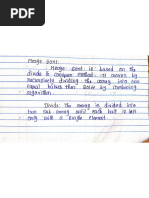 Merge Sort:
Merge Sort is based on the
divide & conquer method. It works by
recursively dividing the array into two
equal halves then solve by combining
algorithm.
Divide: The array is divided into
two sub array until each half is left
only with a single element.